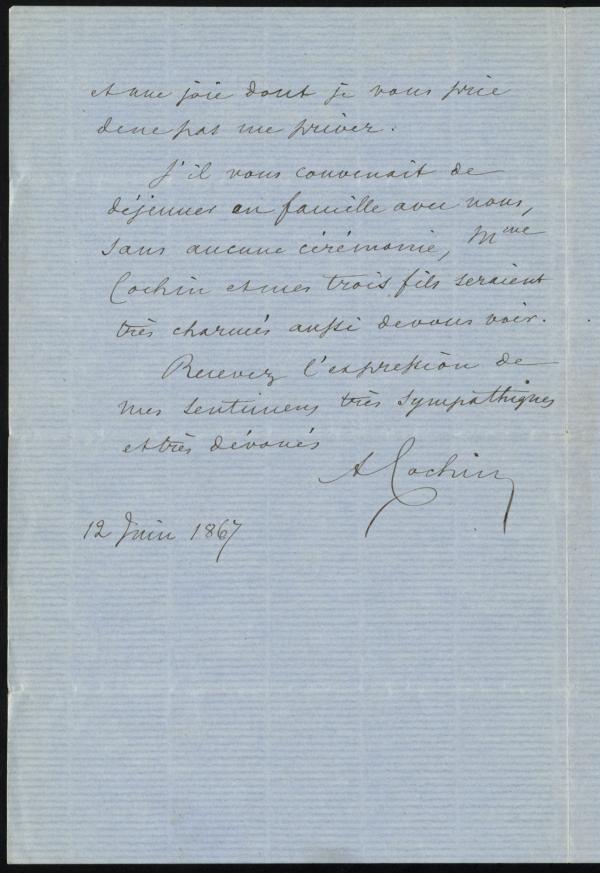 et une joie dont je vous prie
de ne pas me priver.
S'il vous convenait de
déjeuner en famille avec nous,
sans aucune cérémonie, Mme
Cochin et mes trois fils seraient
très charmés aussi de vous voir.
Recevez l'expression de
mes sentimens très sympathiques
et très dévoués
A Cochin
12 Juin 1867